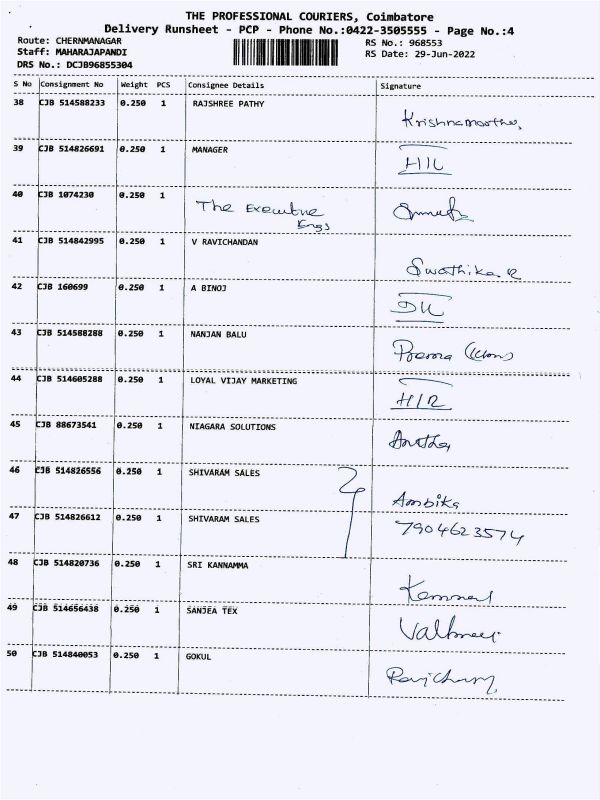 THE PROFESSIONAL COURIERS, Coimbatore
Delivery Runsheet - PCP - Phone No.:0422-3505555 - Page No.:4
Route: CHERNMANAGAR
RS No.: 968553
Staff: MAHARAJAPANDI
RS Date: 29-Jun-2022
DRS No.: DCJB96855304
S No Consignment No Weight PCS Consignee Details Signature
38 CJB 514588233 0.250 1 RAJSHREE PATHY
39 CJB 514826691 0.250 1 MANAGER
40 CJB 1074230 0.250 1 The Executive
Engs
41 CJB 514842995 0.250 1 V RAVICHANDAN
Swathika R
42 CJB 160699 0.250 1 A BINOJ
43 CJB 514588288 0.250 1 NANJAN BALU
44 CJB 514605288 0.250 1 LOYAL VIJAY MARKETING
45 CJB 88673541 0.250 1 NIAGARA SOLUTIONS
46 CJB 514826556 0.250 1 SHIVARAM SALES
Ambika
47 CJB 514826612 0.250 1 SHIVARAM SALES 7904623574
48 CJB 514820736 0.250 1 SRI KANNAMMA
49 CJB 514656438 0.250 1 SANJEA TEX
50 CJB 514840053 0.250 1 GOKUL